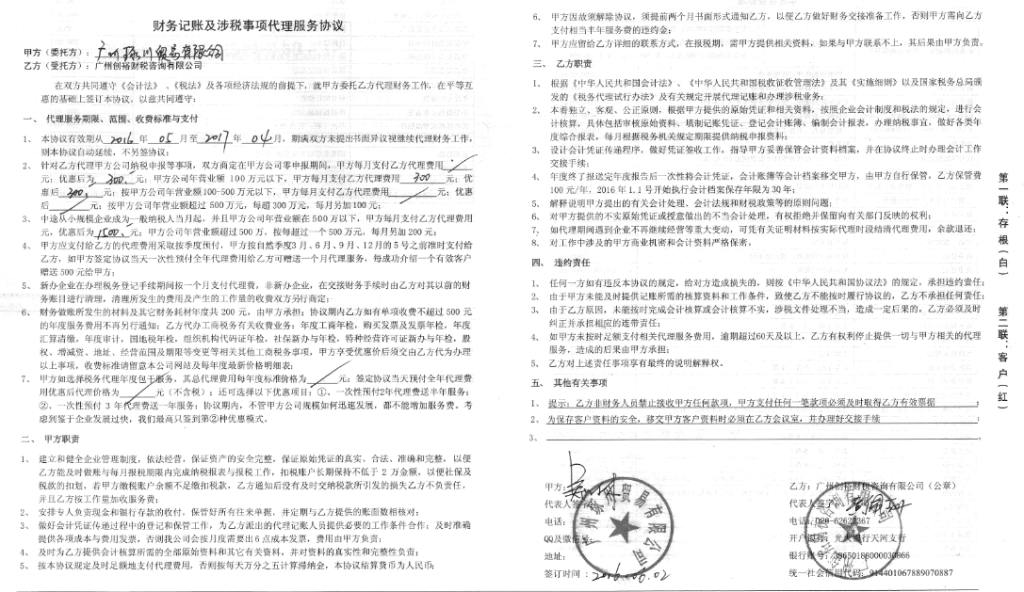 财务记账及涉税事项代理服务协议
甲方（委托方）：广州 川贸易有限公司
乙方（受托方）：广州创裕财税咨询有限公司
在双方共同遵守《会计法》、《税法》及各项经济法规的前提下，就甲方委托乙方代理财务工作，在平等互
惠的基础上签订本协议，以兹共同遵守：
一、 代理服务期限、范围、收费标准与支付
1、 本协议有效期从 2016 年 05 月至 2017 年 04 月，期满双方未提出书面异议视继续代理财务工作，
则本协议自动延续，不另签协议；
2、 针对乙方代理甲方公司纳税申报等事项，双方商定在甲方公司零申报期间，甲方每月支付乙方代理费用
元；优惠后为 300 元；甲方公司年营业额 100 万元以下，甲方每月支付乙方代理费用 300 元；优
惠后 300 元；按甲方公司年营业额100-500 万元以下，甲方每月支付乙方代理费用 元；优惠
后 元；按甲方公司年营业额超过 500 万元，每超 300 万元，每月另加 100 元；
3、 中途从小规模企业成为一般纳税人当月起，并且甲方公司年营业额在 500 万以下，甲方每月支付乙方代理费用
元，优惠后为 1500 元；甲方公司年营业额超过 500 万，按每超过一个 500 万元，每月另加 200 元；
4、 甲方应支付给乙方的代理费用采取按季度预付，甲方按自然季度3月、6月、9月、12月的5号之前准时支付给
乙方，如甲方签定协议当天一次性预付全年代理费用给乙方可赠送一个月代理服务，每成功介绍一个有效客户
赠送 500 元给甲方；
5、 新办企业在办理税务登记手续期间按一个月支付代理费，非新办企业，在交接财务手续时由乙方对其以前的财
务账目进行清理，清理所发生的费用及产生的工作量的收费双方另行商定；
6、 财务做账所发生的材料及其它财务耗材年度共 200 元，由甲方承担；协议期内乙方如有单项收费不超过 500 元
的年度服务费用不再另行通知；乙方代办工商税务有关收费业务：年度工商年检，购买发票及发票年检，年度
汇算清缴，年度审计，国地税年检，组织机构代码证年检，社保新办与年检，特种经营许可证新办与年检，股
权、增减资、地址、经营范围及期限等变更等相关其他工商税务事项，甲方享受优惠价后须交由乙方代为办理
以上事项，收费标准请留意本公司网站及每年度最新价格明细表；
7、 甲方如选择税务代理年度包干服务，其总代理费用每年度标准价格为 元；签定协议当天预付全年代理费
用优惠后代理价格为 元（不含税）；还可选择以下优惠项目：①、一次性预付2年代理费送半年服务；
②、一次性预付 3 年代理费送一年服务；协议期内，不管甲方公司规模如何迅速发展，都不能增加服务费。考
虑到鉴于企业发展过快，我们最高只签到第②种优惠模式。
二、 甲方职责
1、 建立和健全企业管理制度，依法经营，保证资产的安全完整，保证原始凭证的真实、合法、准确和完整，以便
乙方能及时做账与每月报税期限内完成纳税报表与报税工作，扣税账户长期保持不低于 2 万金额，以便社保及
税款的扣划，若甲方缴税账户余额不足缴扣税款，乙方通知后没有及时交纳税款所引发的损失乙方不负责任，
并且乙方按工作量加收服务费；
2、 安排专人负责现金和银行存款的收付，保管好所有往来单据，并定期与乙方提供的账面数相核对；
3、 做好会计凭证传递过程中的登记和保管工作，为乙方派出的代理记账人员提供必要的工作条件合作；及时准确
提供各项成本与费用发票，否则我公司会按月度需要出 6 点成本发票，费用由甲方负责；
4、 及时为乙方提供会计核算所需的全部原始资料和其它有关资料，并对资料的真实性和完整性负责；
5、 按本协议规定及时足额地支付代理费用，否则按每天万分之五计算滞纳金，本协议结算货币为人民币；
6、 甲方因故须解除协议，须提前两个月书面形式通知乙方，以便乙方做好财务交接准备工作，否则甲方需向乙方
支付相当半年服务费的违约金；
7、 甲方应留给乙方详细的联系方式，在报税期，需甲方提供相关资料，如果与甲方联系不上，其后果由甲方负责。
三、 乙方职责
1、 根据《中华人民共和国会计法》、《中华人民共和国税收征收管理法》及其《实施细则》以及国家税务总局颁
发的《税务代理试行办法》及有关规定开展代理记账和办理涉税业务；
2、 本着独立、客观、公正原则，根据甲方提供的原始凭证和相关资料，按照企业会计制度和税法的规定，进行会
计核算，具体包括审核原始资料、填制记账凭证、登记会计账簿、编制会计报表、办理纳税事宜，做好各类年
度综合报表，每月根据税务机关规定期限提供纳税申报资料；
3、 设计会计凭证传递程序，做好凭证签收工作，指导甲方妥善保管会计资料档案，并在协议终止时办理会计工作
交接手续；
4、 年度终了报送完年度报告后一次性将会计凭证，会计账簿等会计档案移交甲方，由甲方自行保管，乙方保管费
100 元/年，2016 年 1.1 号开始执行会计档案保存年限为30 年；
5、 解释说明甲方提出的有关会计处理、会计法规和财税政策等的原则问题；
6、 对甲方提供的不实原始凭证或授意做出的不当会计处理，有权拒绝并保留向有关部门反映的权利；
7、 如代理期间遇到企业不再继续经营等重大变动，可凭有关证明材料按实际代理时段结清代理费用，余款退还；
8、 对工作中涉及的甲方商业机密和会计资料严格保密。
四、 违约责任
1、 任何一方如有违反本协议的规定，给对方造成损失的，则按《中华人民共和国协议法》的规定，承担违约责任；
2、 由于甲方未能及时提供记账所需的核算资料和工作条件，致使乙方不能按时履行协议的，乙方不承担任何责任；
3、 由于乙方原因，未能按时完成会计核算或会计核算不实，涉税文件处理不当，造成一定后果的，乙方必须及时
纠正并承担相应的连带责任；
4、 如甲方未按时足额支付相关代理服务费用，逾期超过60天及以上，乙方有权利停止提供一切与甲方相关的代理
服务，造成的后果由甲方承担；
5、 乙方对上述责任事项享有最终的说明解释权。
五、 其他有关事项
1、 提示：乙方非财务人员禁止接收甲方任何款项，甲方支付任何一笔款项必须及时取得乙方有效票据 ；
2、 为保存客户资料的安全，移交甲方客户资料时必须在乙方会议室，并办理好交接手续 ；
3、
甲方：
代表人签字：
电话：
QQ及微信
地址：
签订时间：2016.06.02
乙方：广州创裕财税咨询有限公司（公章）
代表人签字：
电话：020-62622367
开户银行：光大银行天河支行
统一社会信用代码：914401067889070887
第一联：存根（白）
第二联：客户（红）